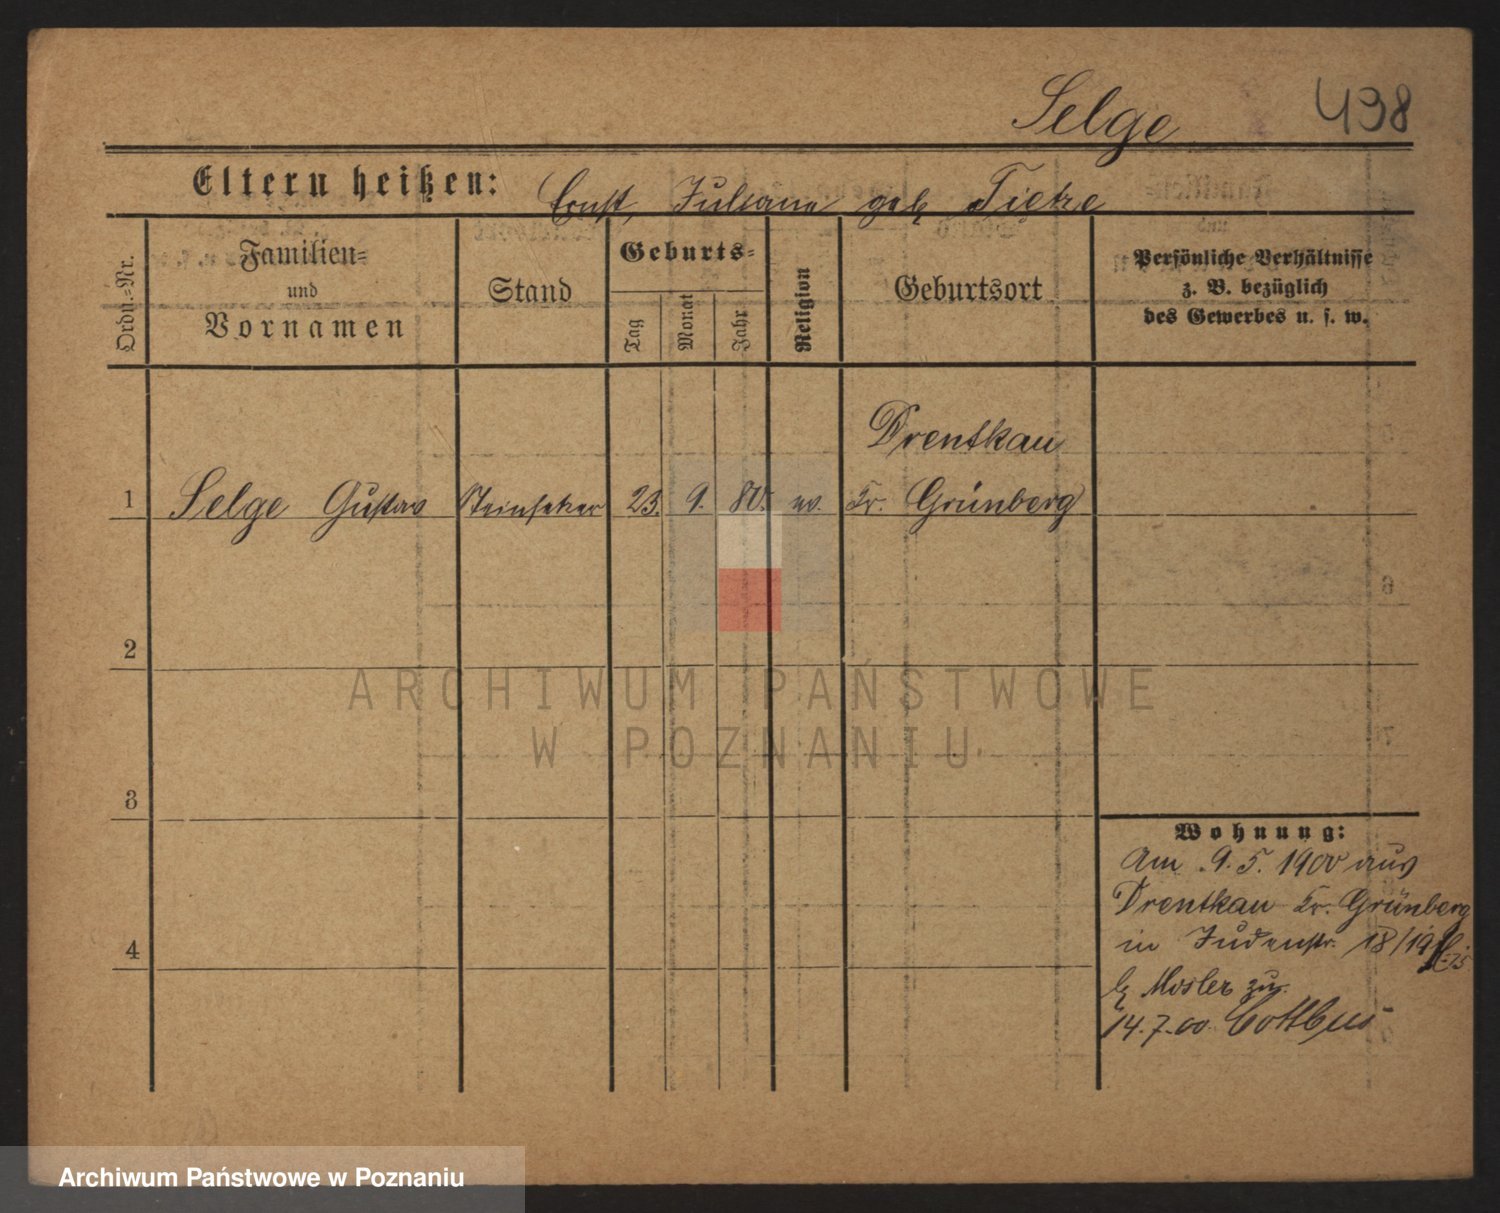 Selge 498
Eltern heißen: Ernst, Juliane geb Tietze
Ordn.-Nr.
Familien-
und
Vornamen
Stand
Geburts-
Tag
Monat
Jahr
Religion
Geburtsort
Persönliche Verhältnisse
z. B. bezüglich
des Gewerbes u. s. w.
Drentkau
1 Selge Gustav Steinsetzer 23. 9. 80. ev. Kr. Grünberg
2
3
4
Wohnung:
Am 9. 5. 1900 aus
Drentkau Kr. Grünberg
in Judenstr. 18/19
b Mosler zu.
14.7.00. Cottbus
ARCHIWUM PAŃSTWOWE
W POZNANIU
Archiwum Państwowe w Poznaniu